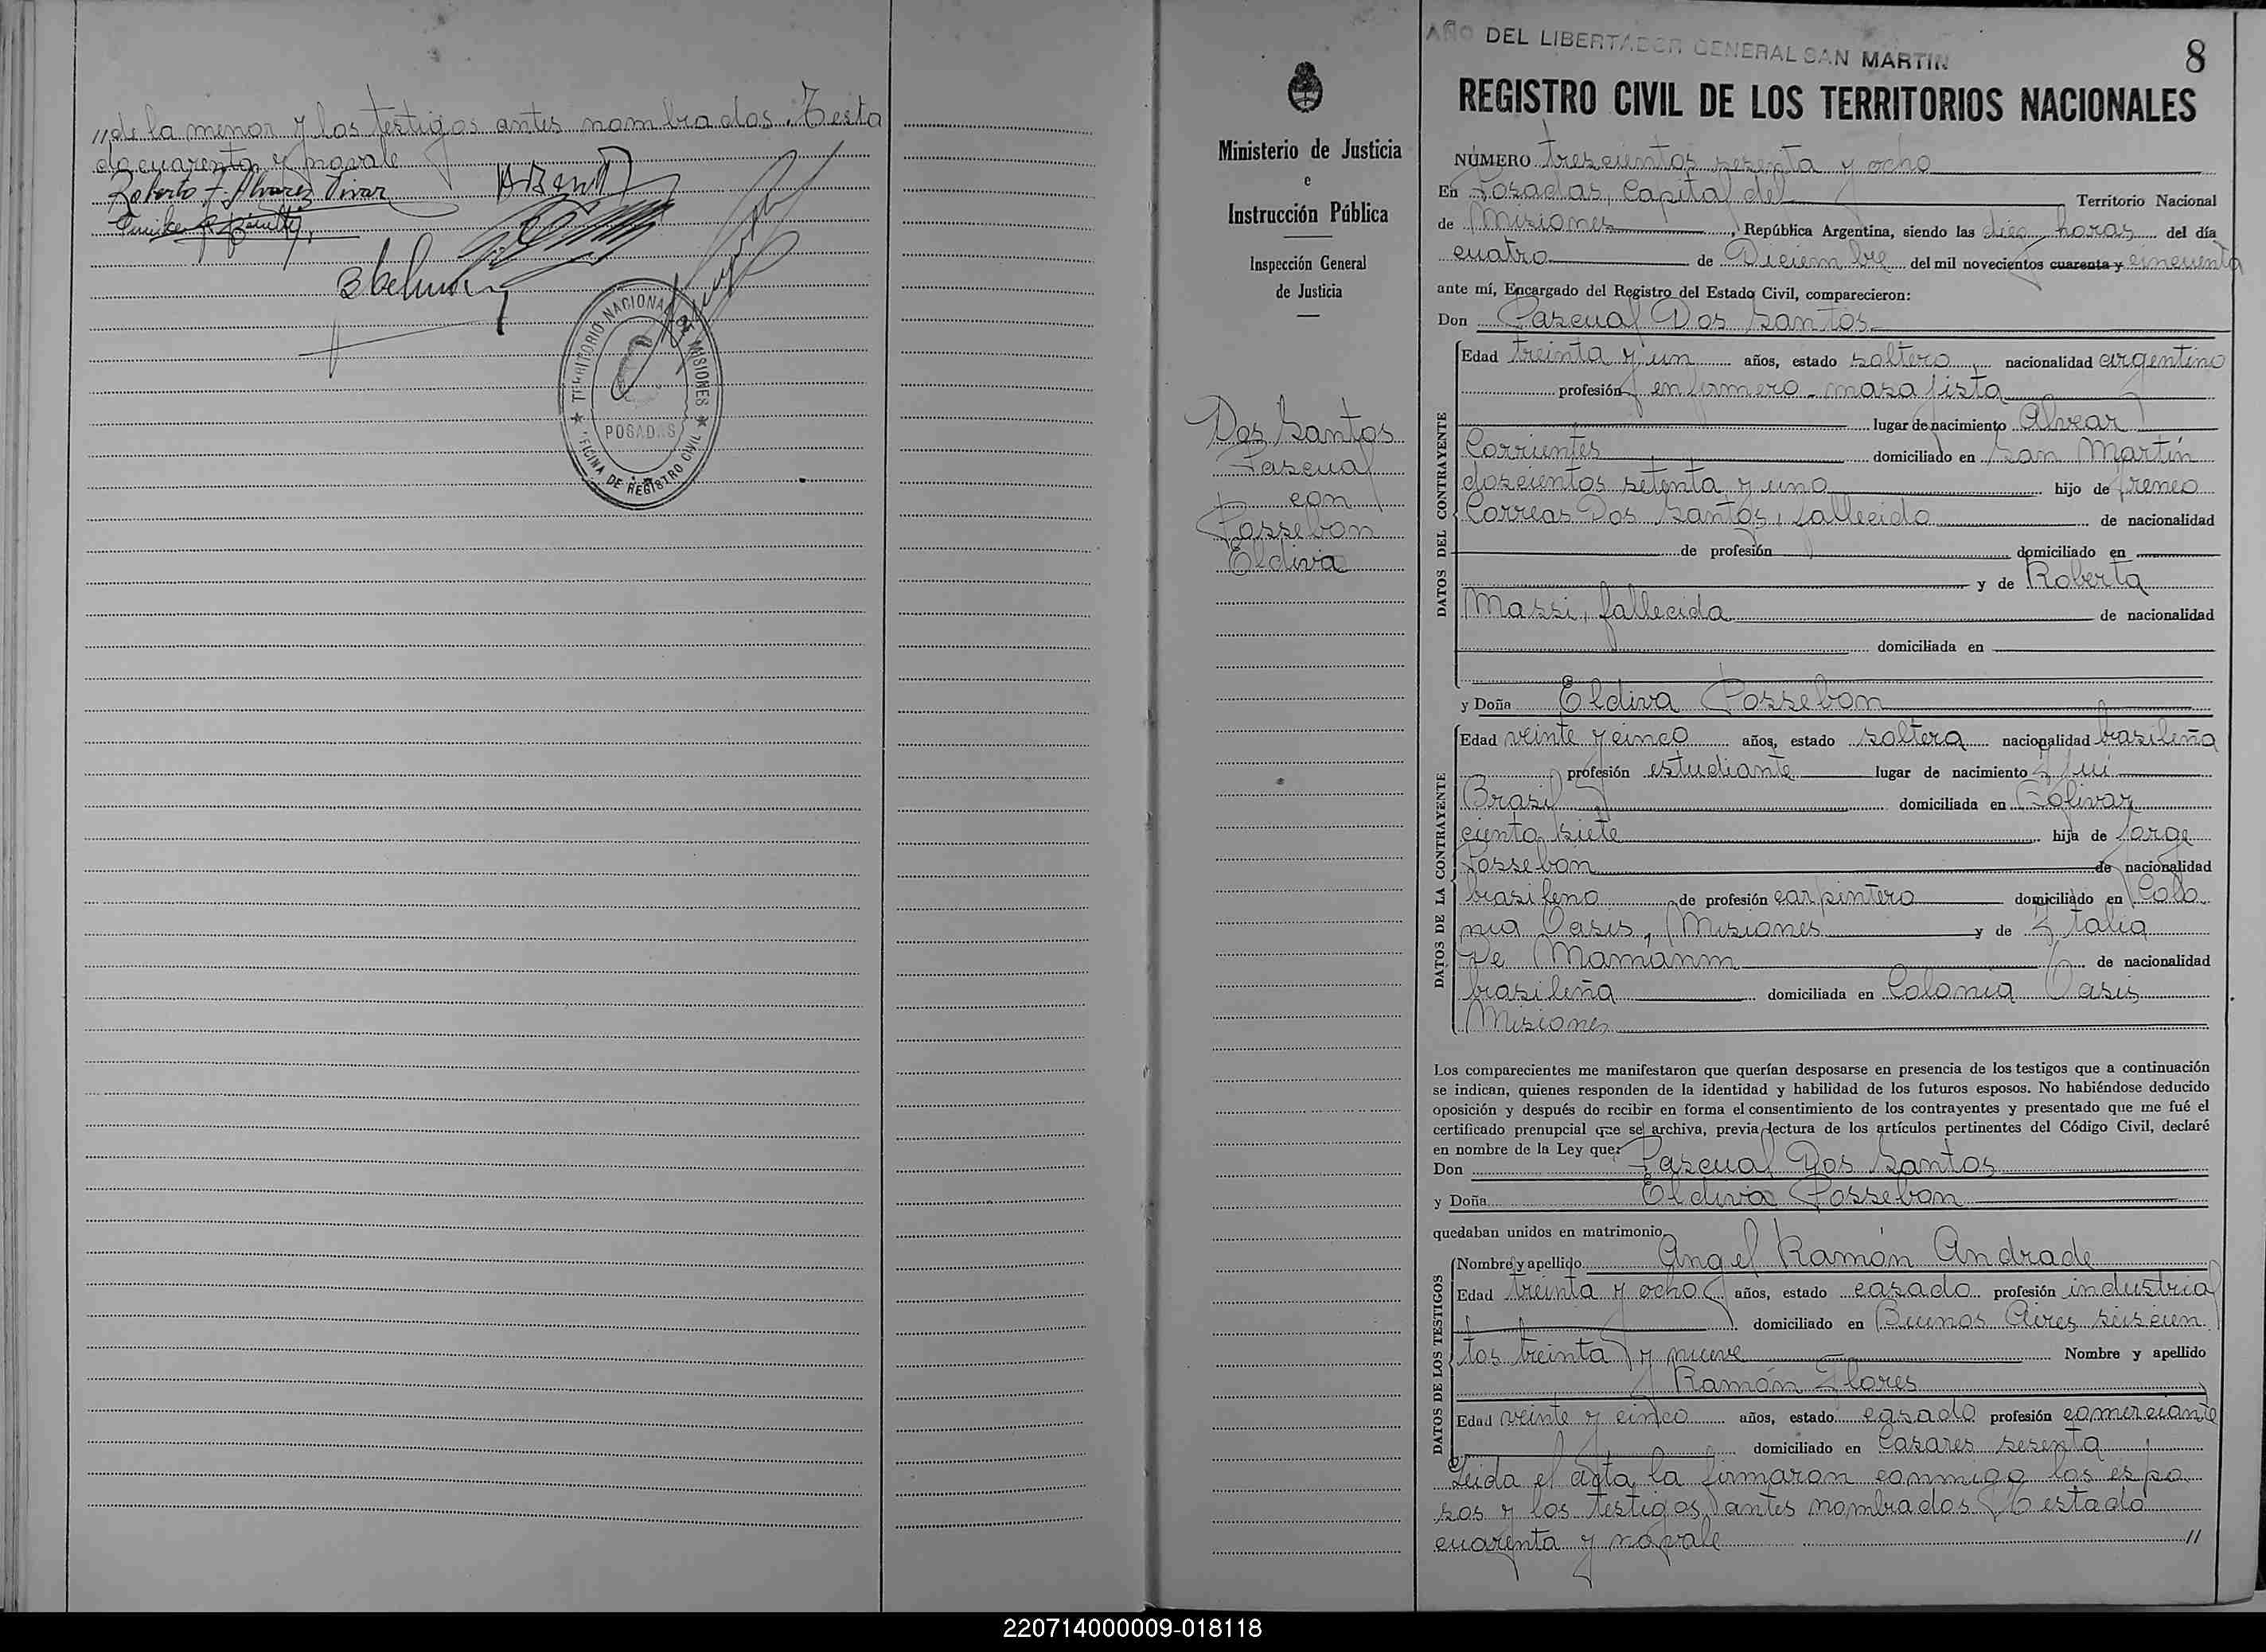 //de la menor y los testigos antes nombrados. Testa
do cuarenta y no vale
Roberto F. Alvarez Vivar
TERRITORIO NACIONAL DE MISIONES
POSADAS
OFICINA DE REGISTRO CIVIL
Ministerio de Justicia
e
Instrucción Pública
Inspección General
de Justicia
Dos Santos
Pascual
con
Possebon
Eldiva
AÑO DEL LIBERTADOR GENERAL SAN MARTIN
8
REGISTRO CIVIL DE LOS TERRITORIOS NACIONALES
NÚMERO trescientos sesenta y ocho
En Posadas, Capital del Territorio Nacional
de Misiones, República Argentina, siendo las diez horas del día
cuatro de Diciembre del mil novecientos cuarenta y cincuenta
ante mí, Encargado del Registro del Estado Civil, comparecieron:
Don Pascual Dos Santos
DATOS DEL CONTRAYENTE
Edad treinta y un años, estado soltero nacionalidad argentino
profesión enfermero - masajista
lugar de nacimiento Alvear
Corrientes domiciliado en San Martín
doscientos setenta y uno hijo de Ireneo
Correas Dos Santos, fallecido de nacionalidad
de profesión domiciliado en
y de Roberta
Massi, fallecida de nacionalidad
domiciliada en
y Doña Eldiva Possebon
DATOS DE LA CONTRAYENTE
Edad veinte y cinco años, estado soltera nacionalidad brasileña
profesión estudiante lugar de nacimiento Ijui
Brasil domiciliada en Bolivar
ciento siete hija de Jorge
Possebon de nacionalidad
brasileno de profesión carpintero domiciliado en Colo
nia Oasis, Misiones y de Italia
De Mamanm de nacionalidad
brasileña domiciliada en Colonia Oasis
Misiones
Los comparecientes me manifestaron que querían desposarse en presencia de los testigos que a continuación
se indican, quienes responden de la identidad y habilidad de los futuros esposos. No habiéndose deducido
oposición y después de recibir en forma el consentimiento de los contrayentes y presentado que me fué el
certificado prenupcial que se archiva, previa lectura de los artículos pertinentes del Código Civil, declaré
en nombre de la Ley que:
Don Pascual Dos Santos
y Doña Eldiva Possebon
quedaban unidos en matrimonio
DATOS DE LOS TESTIGOS
Nombre y apellido Angel Ramón Andrade
Edad treinta y ocho años, estado casado profesión industrial
domiciliado en Buenos Aires seiscien
tos treinta y nueve Nombre y apellido
Ramón Flores
Edad veinte y cinco años, estado casado profesión comerciante
domiciliado en Casares sesenta
Leida el acta la firmaron conmigo los espo
sos y los testigos antes nombrados. Testado
cuarenta y no vale //
220714000009-018118